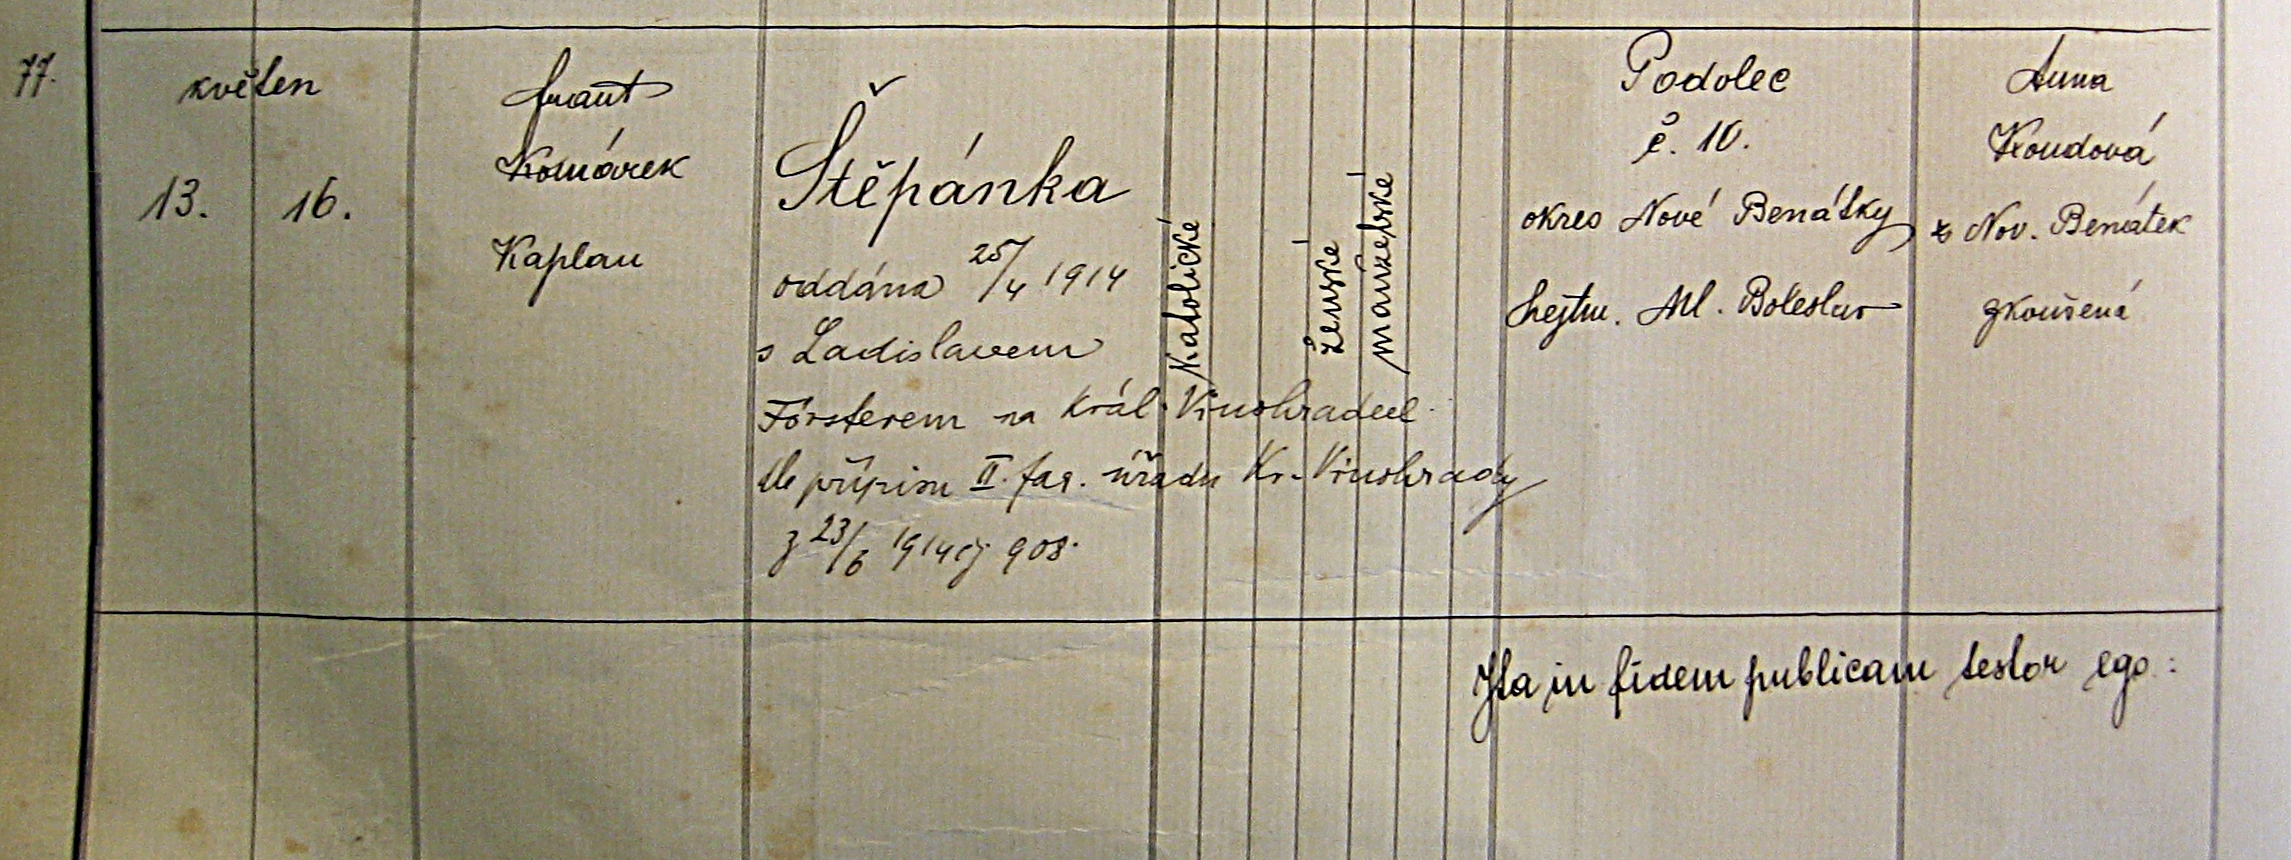 77.
květen
13. 16.
Frant
Komárek
Kaplan
Štěpánka
oddána 25/4 1914
s Ladislavem
Försterem na Král. Vinohradech
dle přípisu II. far. úřadu Kr. Vinohrady
z 23/6 1914 čj 908.
Katolické
ženské
manželské
Podolec
č. 10.
okres Nové Benátky
hejtm. Ml. Boleslav
Anna
Koudová
z Nov. Benátek
zkoušená
Ita in fidem publicam testor ego: